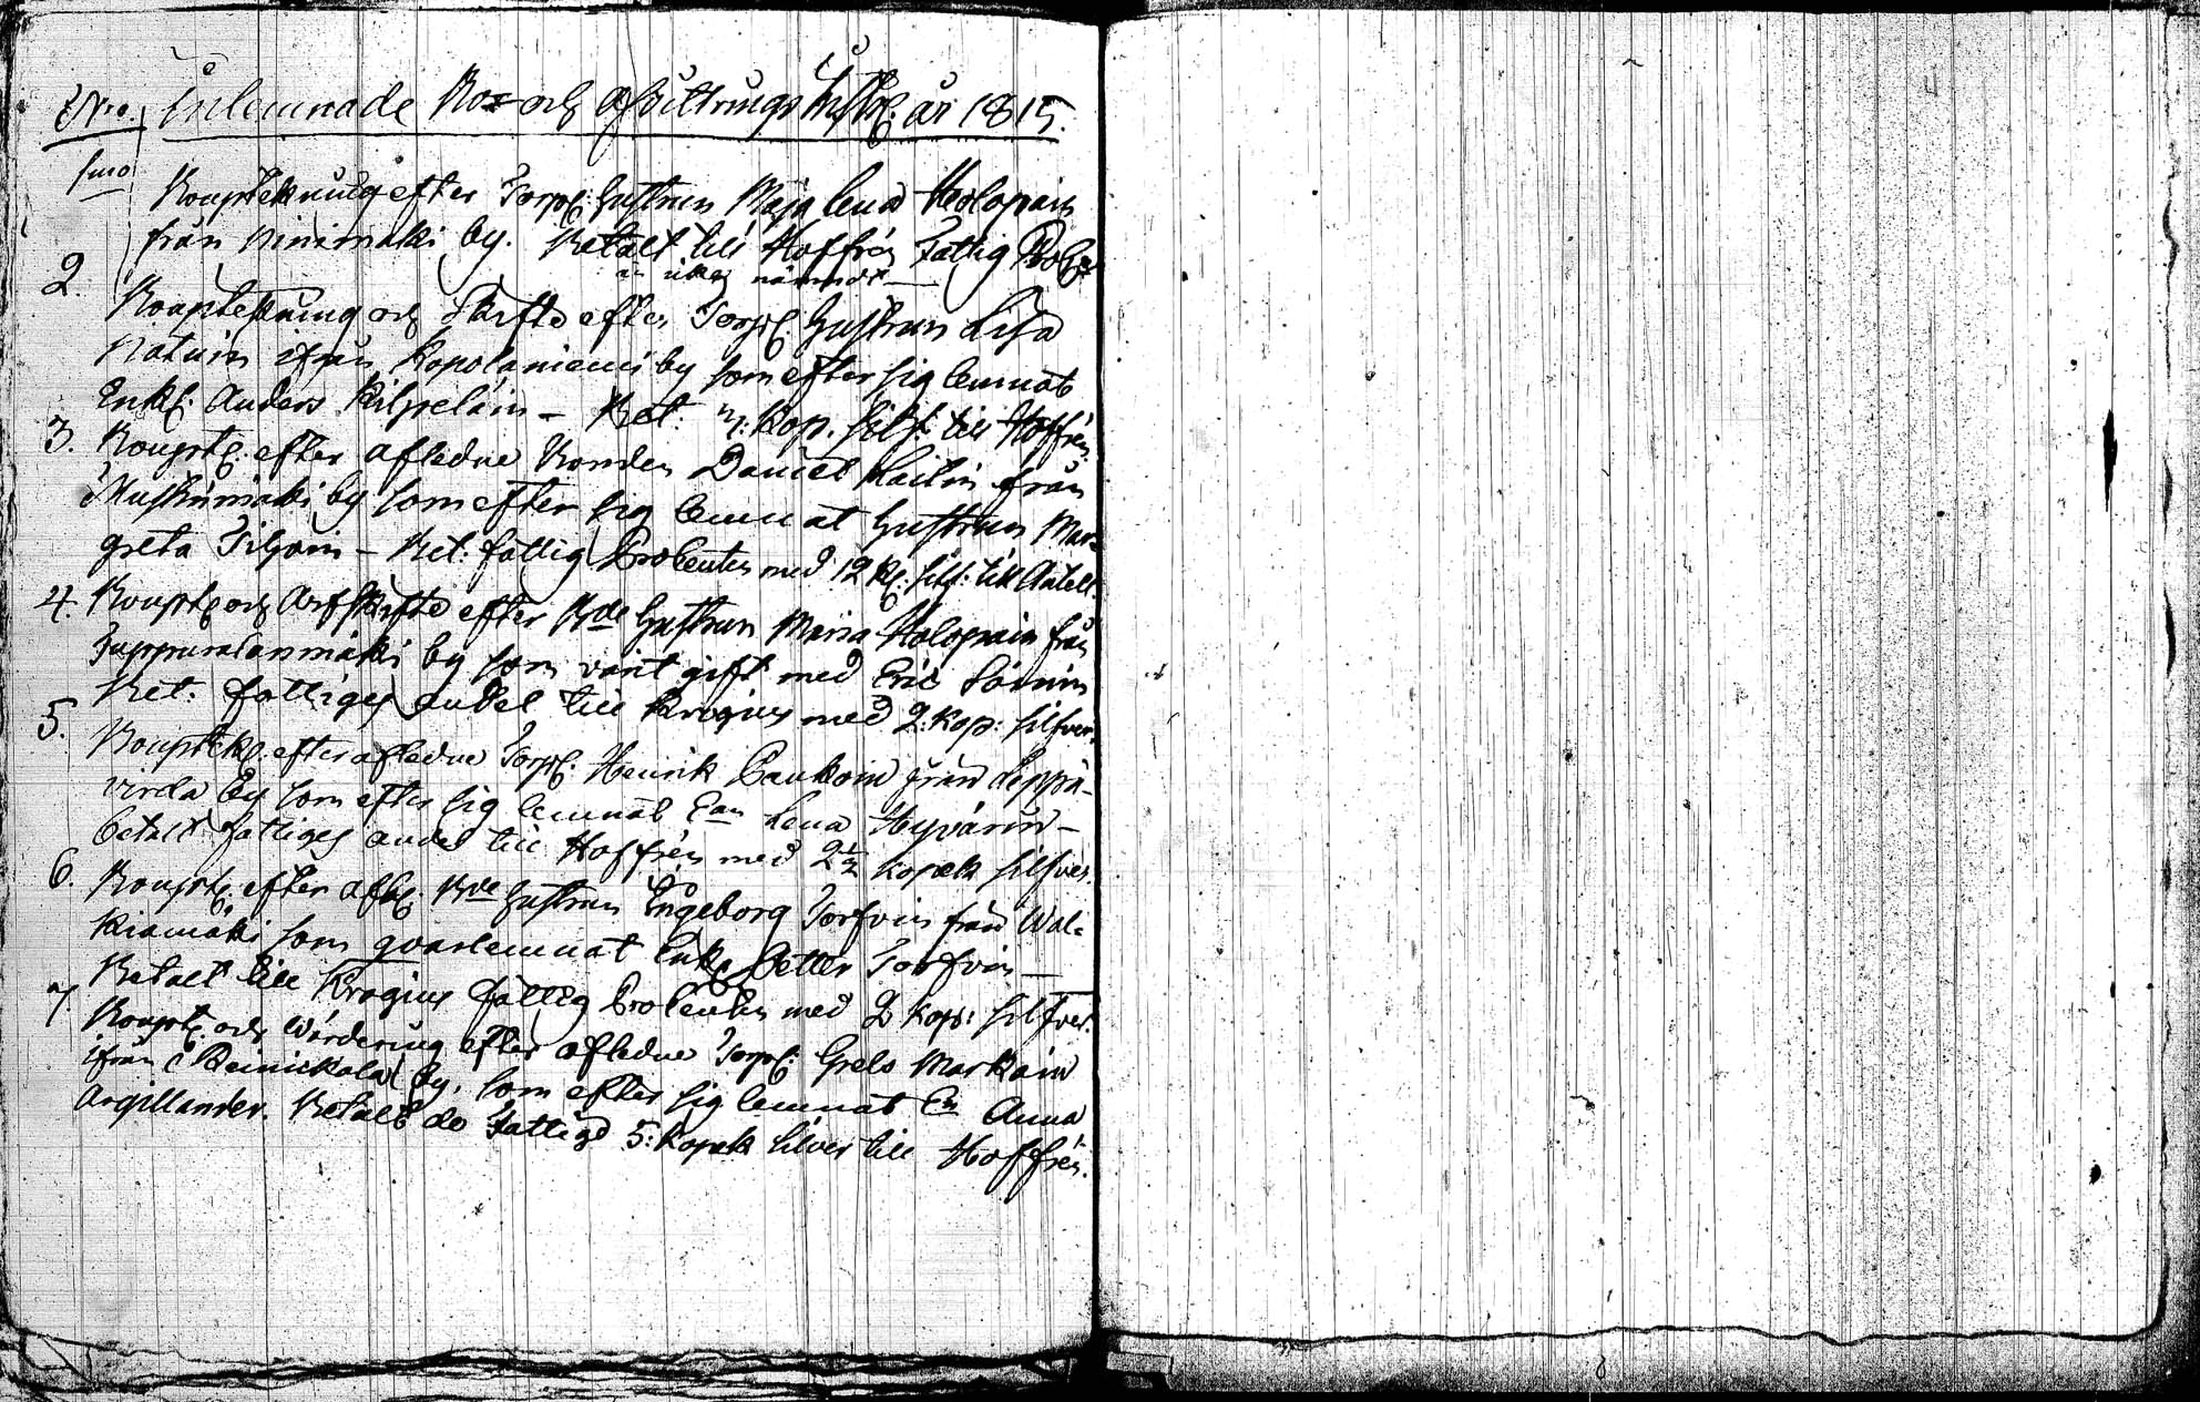 Nro. Inlemnade Bo- och afvittrings Instr: år 1815.
1mo Boupteckning efter Torp: Hustrun Maja Lena Holopain
från Ninimäki by. Betalt till Hoffrén Fattig Proc:
är icke nämndt
2. Bouptekning och Skifte efter Torp: Hustrun Lisa
ifrån Kopolaniemi by som efter sig lemnat
Enkl: Anders Kilpeläin - Bet: Kop. silf: till Hoffrén
3. Bouptg: efter afledne Bonden Daniel Laitin från
Mustinmäki by som efter sig lemnat Hustrun Mar=
greta - Bet: fattig Procenten med 12 K: silf: till Antell.
4. Bouptg och Arfskifte efter Bde Hustrun Maria Holopain från
by som varit gift med Eric
Bet: fattiges andel till Krogius med 2: Kop: silfver.
5. Bouptek: efter afledne Torp: Henrik Paukoin från Leppä-
virda by som efter sig lemnat Ean Lena Hyvärin -
betalt fattiges andel till Hoffrén med 2½ kopek silfver.
6. Bouptg: efter afl: Bde Hustrun Engeborg Torfvin från Wal=
kiamäki som qvarlemnat Enkl: Petter Torfvin -
Betalt till Krogius fattig Procenten med 2 Kop: silfver.
7. Bouptg: och Wärdering efter afledne Torp: Grels Markain
ifrån Reinickala by, som efter sig lemnat En Anna
Argillander. Betalt de Fattige 5: kopek silver till Hoffrén.